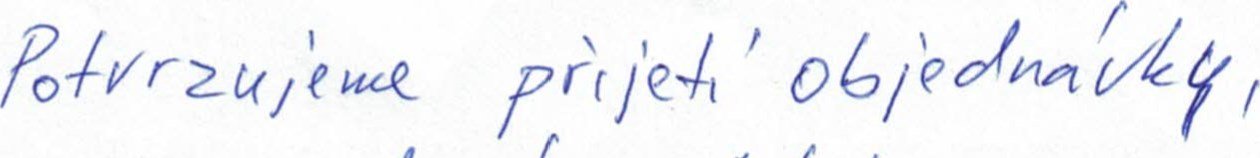 Potvrzujeme přijetí objednávky,